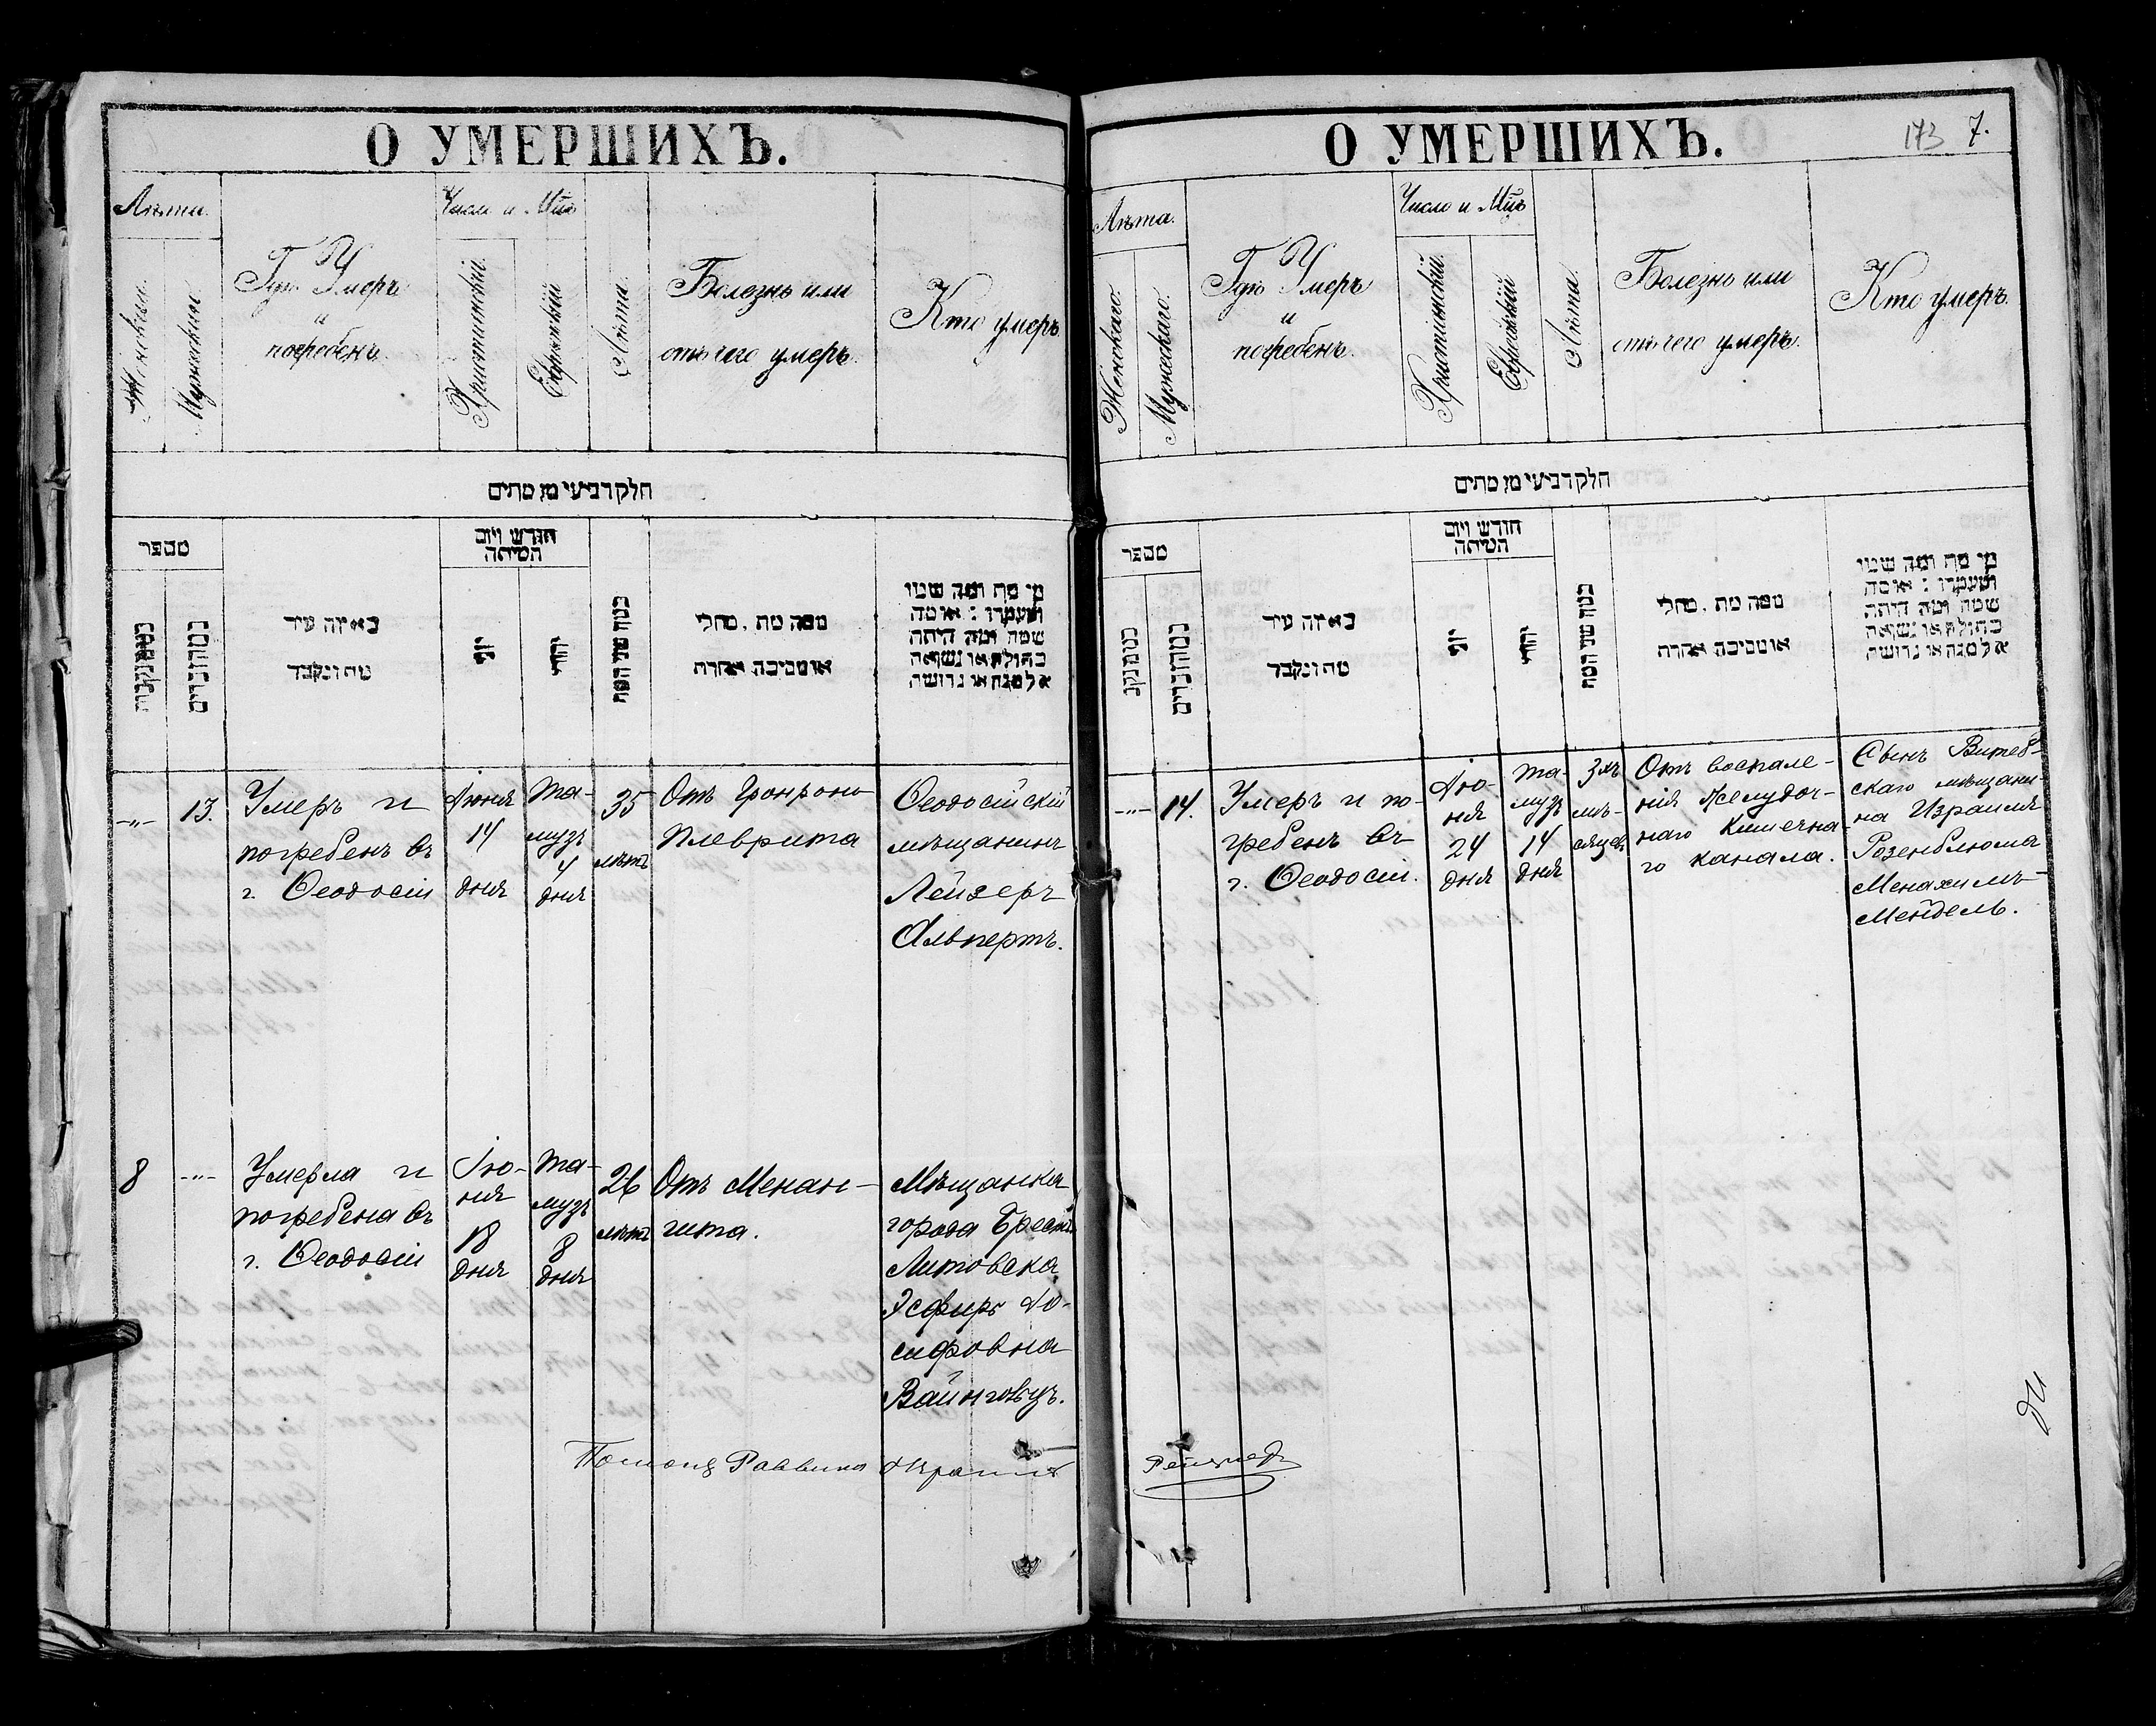 О УМЕРШИХЪ.
Лѣта.
Женскаго.
Мужескаго.
Гдѣ Умеръ
и
погребенъ.
Число и Мцъ
Христіанскій.
Еврейскій
Лѣта.
Болезнь или
отъ чего умеръ.
Кто умеръ
חלק רביעי מן מתים
מספר
במהנקבות
במהזכרים
באיזה עיר
מת ונקבר
חודש ויום
המיתה
יוני
יהודי
כמה שני המת
ממה מת, מחלי
או מסיבה אחרת
מי מת ומה שמו
ומעמדו : או מה
שמה ומה היתה
בתולה או נשואה
אלמנה או גרושה
-„-
13.
Умеръ и
погребенъ въ
г. Ѳеодосіи
Іюня
14
дня
Та-
музъ
4
дня
35
лѣтъ
Отъ
Плеврита
Ѳеодосійскій
мѣщанинъ
Лейзеръ
Альпертъ.
8
-„-
Умерла и
погребена въ
г. Ѳеодосіи
Ію-
ня
18
дня
Та-
музъ
8
дня
26
лѣтъ
Отъ Менан-
гита.
Мѣщанка
города Брестъ
Литовска
Эсфирь Іо-
сифовна
Вайнговцъ.
Помощ Раввина Израиль
О УМЕРШИХЪ.
173 7.
Лѣта.
Женскаго.
Мужескаго.
Гдѣ Умеръ
и
погребенъ.
Число и Мцъ
Христіанскій.
Еврейскій
Лѣта.
Болезнь или
отъ чего умеръ.
Кто умеръ.
חלק רביעי מן מתים
מספר
במהזכרים
באיזה עיר
מת ונקבר
חודש ויום
המיתה
יוני
יהודי
כמה שני המת
ממה מת, מחלי
או מסיבה אחרת
מי מת ומה שמו
ומעמדו : או מה
שמה ומה היתה
בתולה או נשואה
אלמנה או גרושה
-„-
14.
Умеръ и по-
гребенъ въ
г. Ѳеодосіи.
Ію-
ня
24
дня
Та-
музъ
14
дня
3хъ
мѣ-
сяцевъ
Отъ воспале-
нія желудоч-
наго кишечна-
го канала.
Сынъ Витеб-
скаго мѣщани-
на Израиля
Розенблюма
Менахимъ-
Мендель.